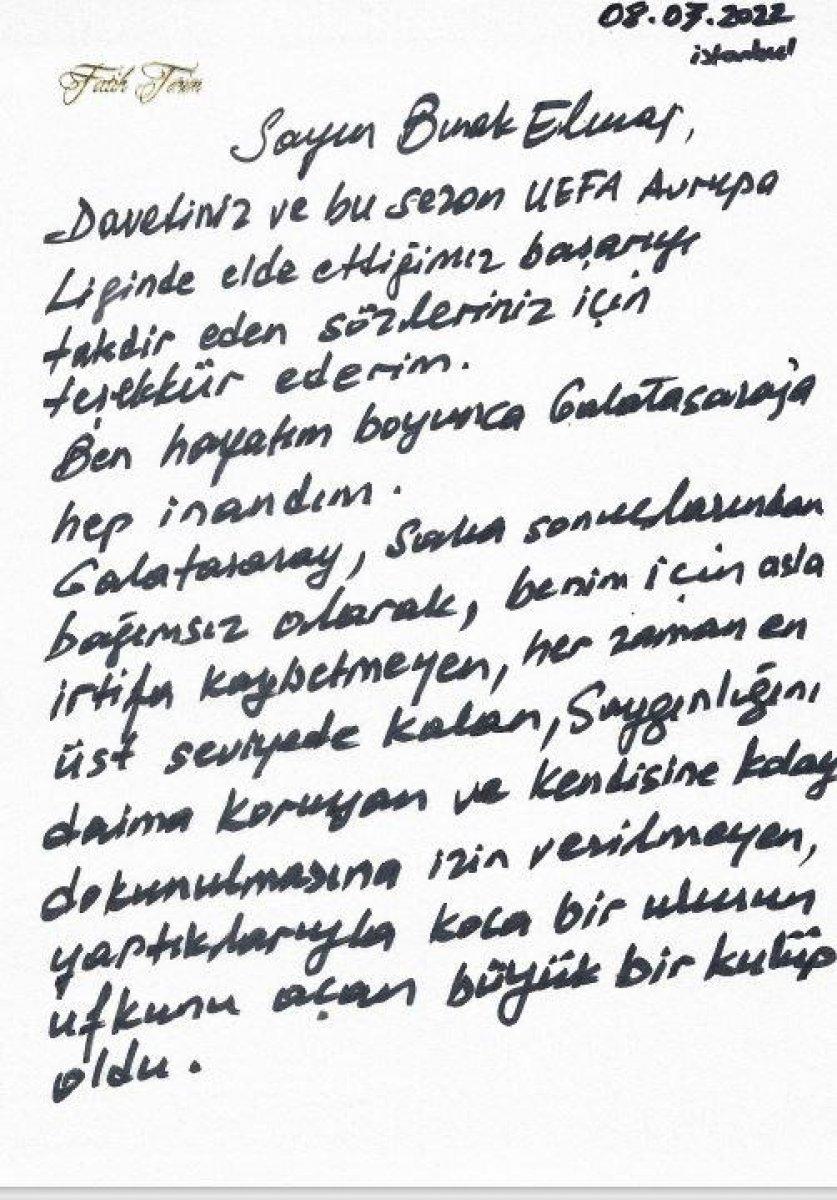 08.03.2022
istanbul
Fatih Terim
Sayın Burak Elmas,
Davetiniz ve bu sezon UEFA Avrupa
Liginde elde ettiğimiz başarıyı
takdir eden sözleriniz için
teşekkür ederim.
Ben hayatım boyunca Galatasaraya
hep inandım.
Galatasaray, saha sonuçlarından
bağımsız olarak, benim için asla
irtifa kaybetmeyen, her zaman en
üst seviyede kalan, Saygınlığını
daima koruyan ve kendisine kolay
dokunulmasına izin verilmeyen,
yaptıklarıyla koca bir ulusun
ufkunu açan büyük bir kulüp
oldu.